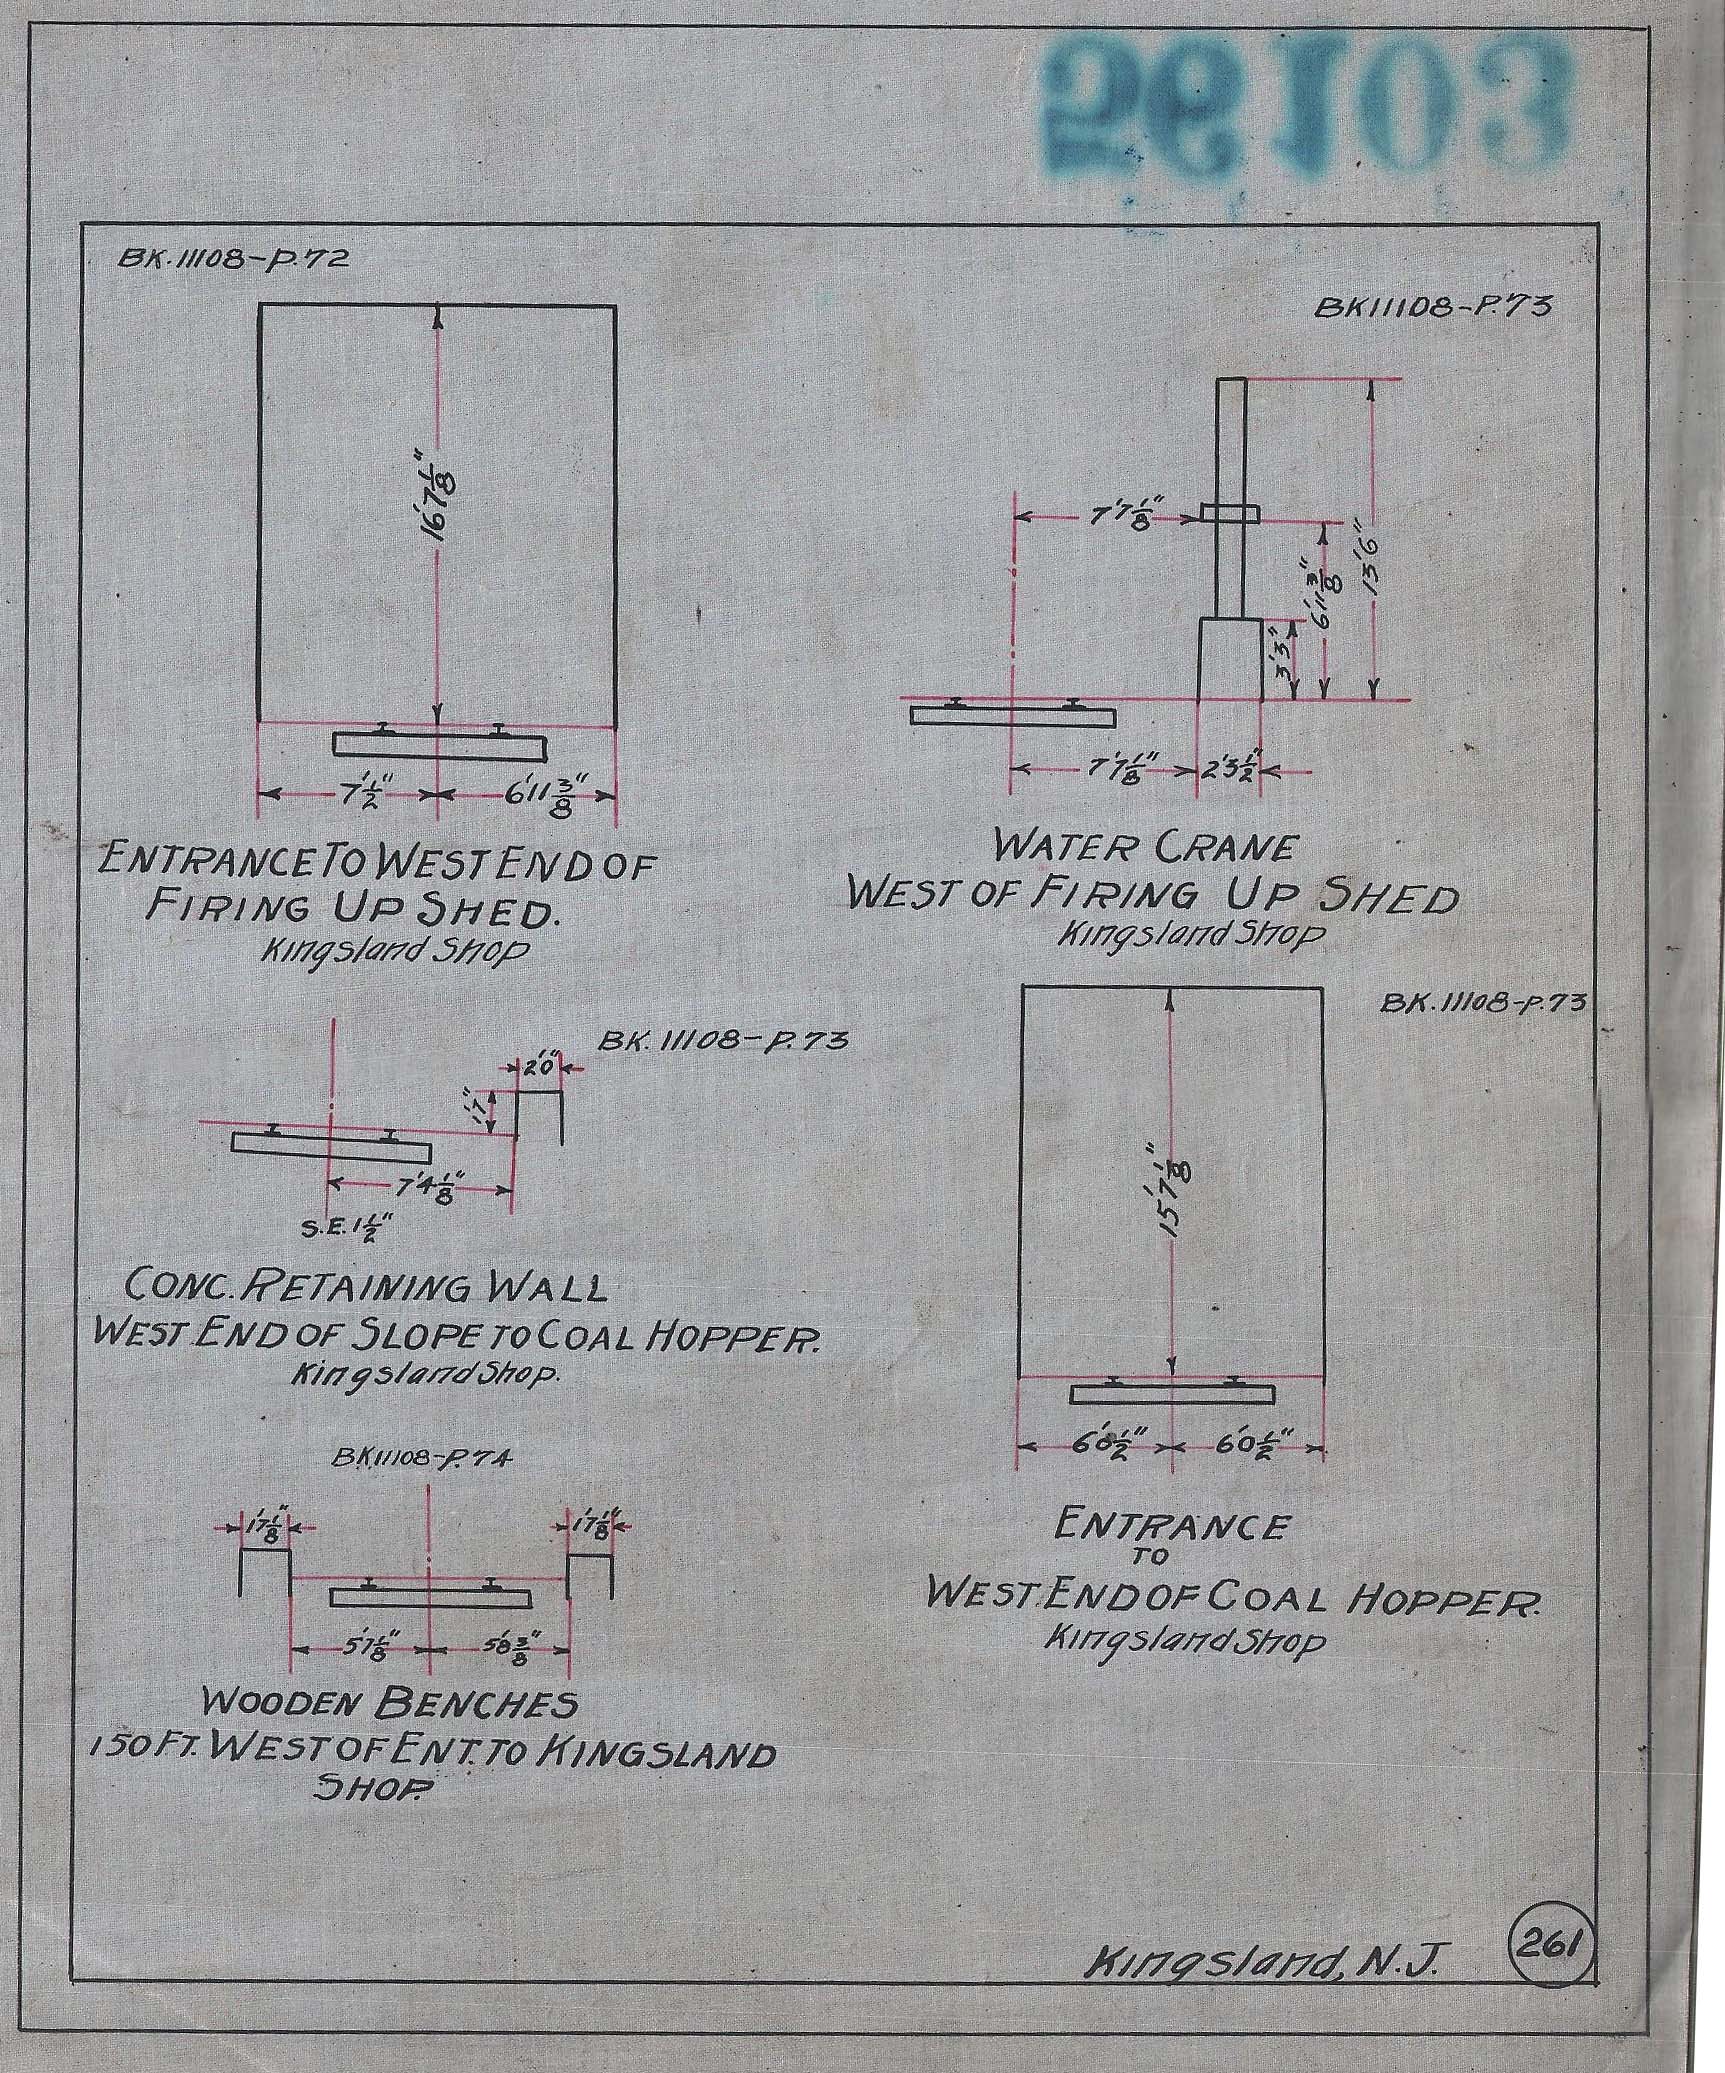 56103
BK.11108-P.72
16'7 1/8"
7' 1/2"
6'11 3/8"
ENTRANCE TO WEST END OF
FIRING UP SHED.
Kingsland Shop
BK11108-P.73
7'7 1/8"
13'6"
6'11 3/8"
3'3"
7'7 1/8"
2'3 1/2"
WATER CRANE
WEST OF FIRING UP SHED
Kingsland Shop
BK. 11108-P.73
2'0"
1'7"
7'4 1/8"
S.E. 1 1/2"
CONC. RETAINING WALL
WEST END OF SLOPE TO COAL HOPPER.
Kingsland Shop.
BK. 11108-P.73
15'7 1/8"
6'0 1/2"
6'0 1/2"
ENTRANCE
TO
WEST END OF COAL HOPPER.
Kingsland Shop
BK11108-P.74
1'7 1/8"
1'7 1/8"
5'7 1/8"
5'8 3/8"
WOODEN BENCHES
150 FT. WEST OF ENT. TO KINGSLAND
SHOP.
Kingsland, N.J.
261